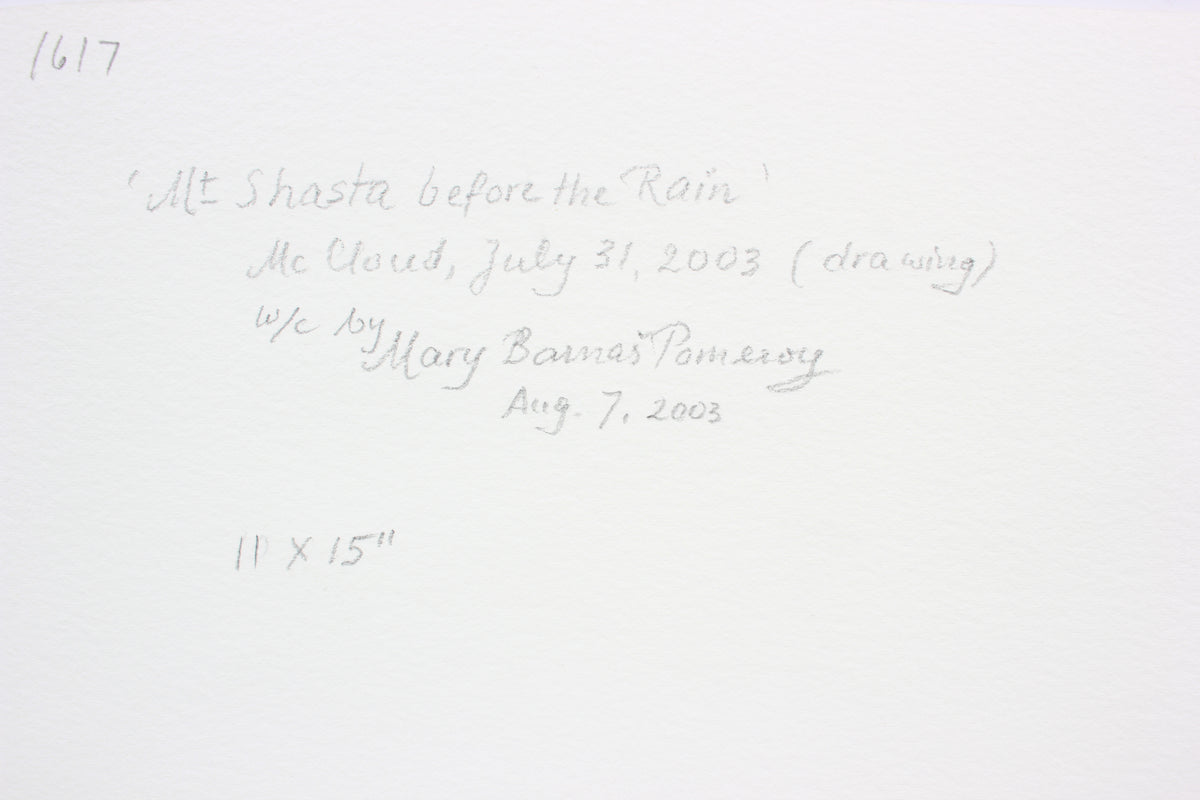 1617
'Mt Shasta before the Rain'
McCloud, July 31, 2003 (drawing)
w/c by
Mary Barnas Pomeroy
Aug. 7, 2003
11 X 15"